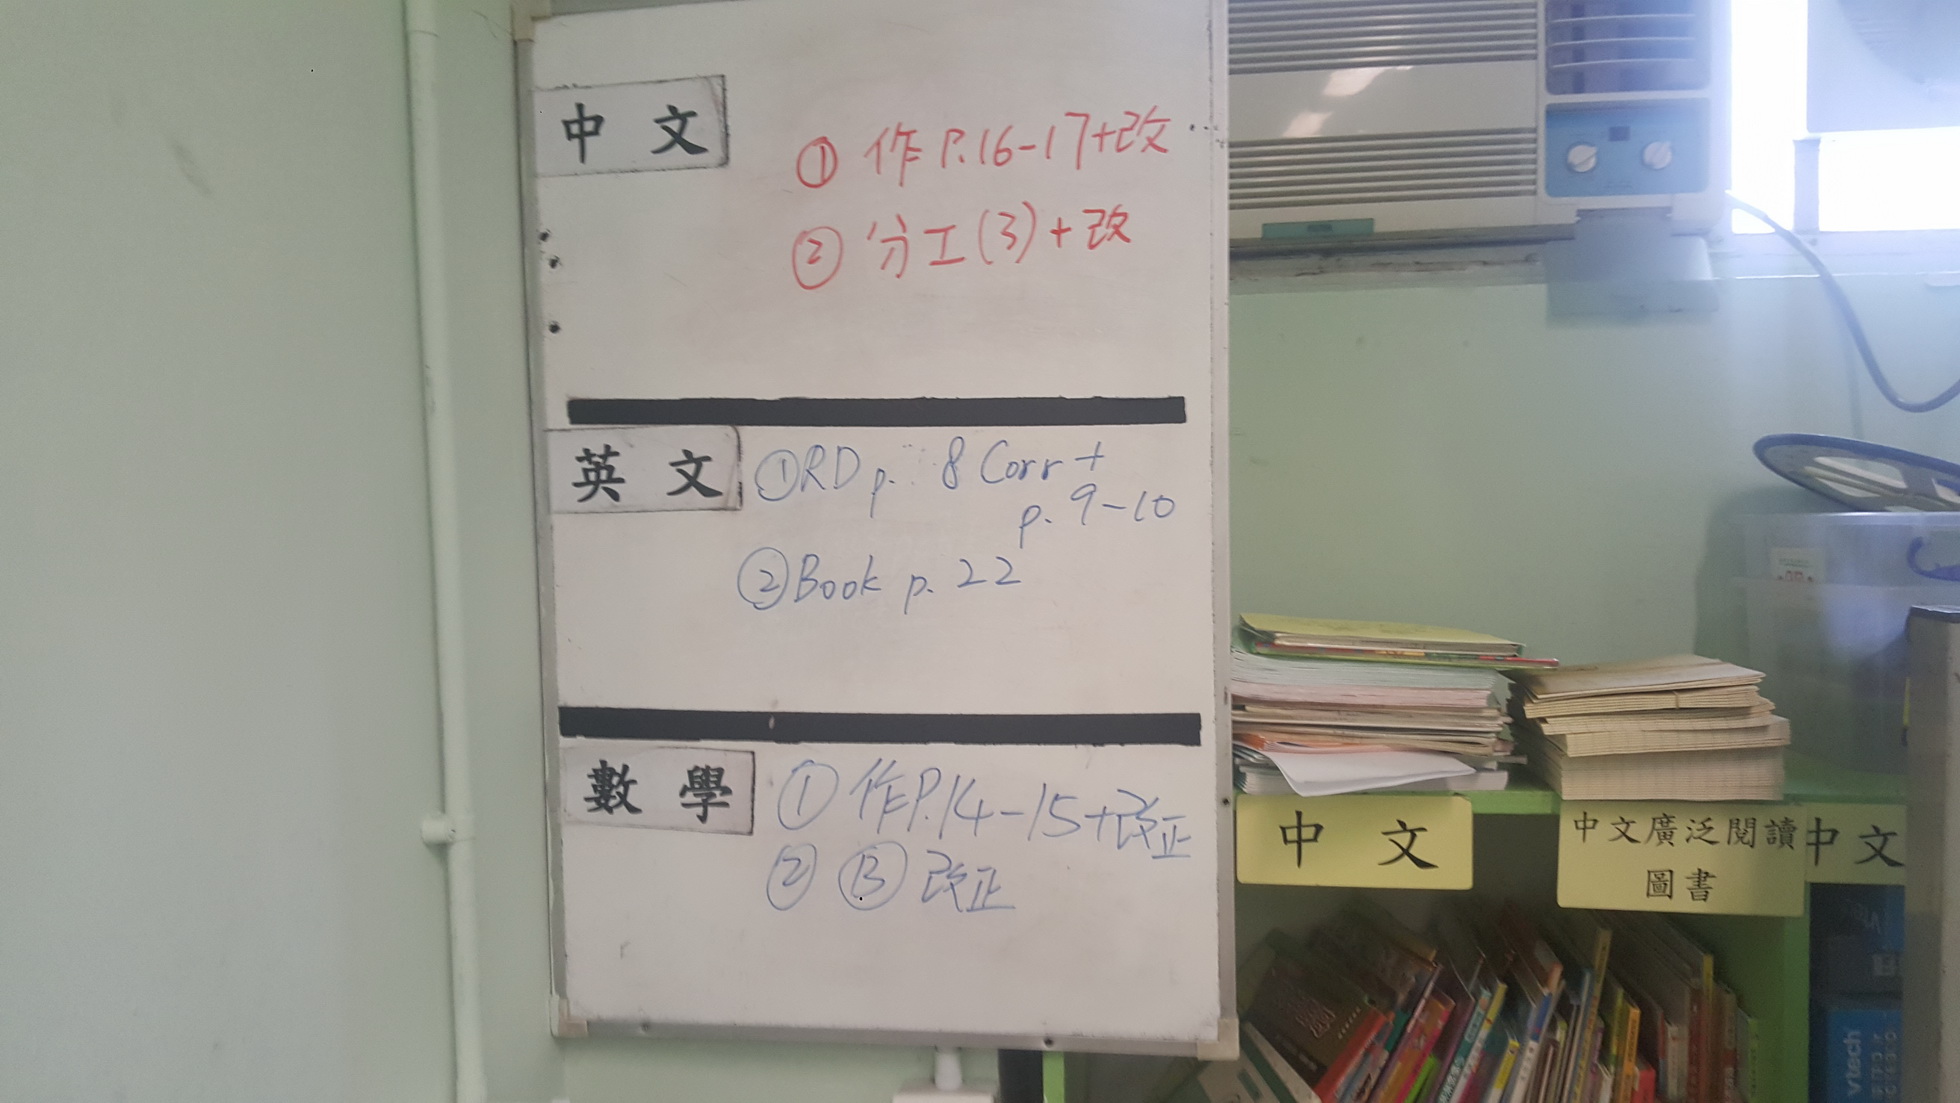 中文
① 作 P.16-17+改
② 分工(3)+改
英文
① RD p. 8 Corr +
p. 9-10
② Book p. 22
數學
① 作P.14-15+改正
② ⑬ 改正
中文
中文廣泛閱讀
圖書
中文
vtech